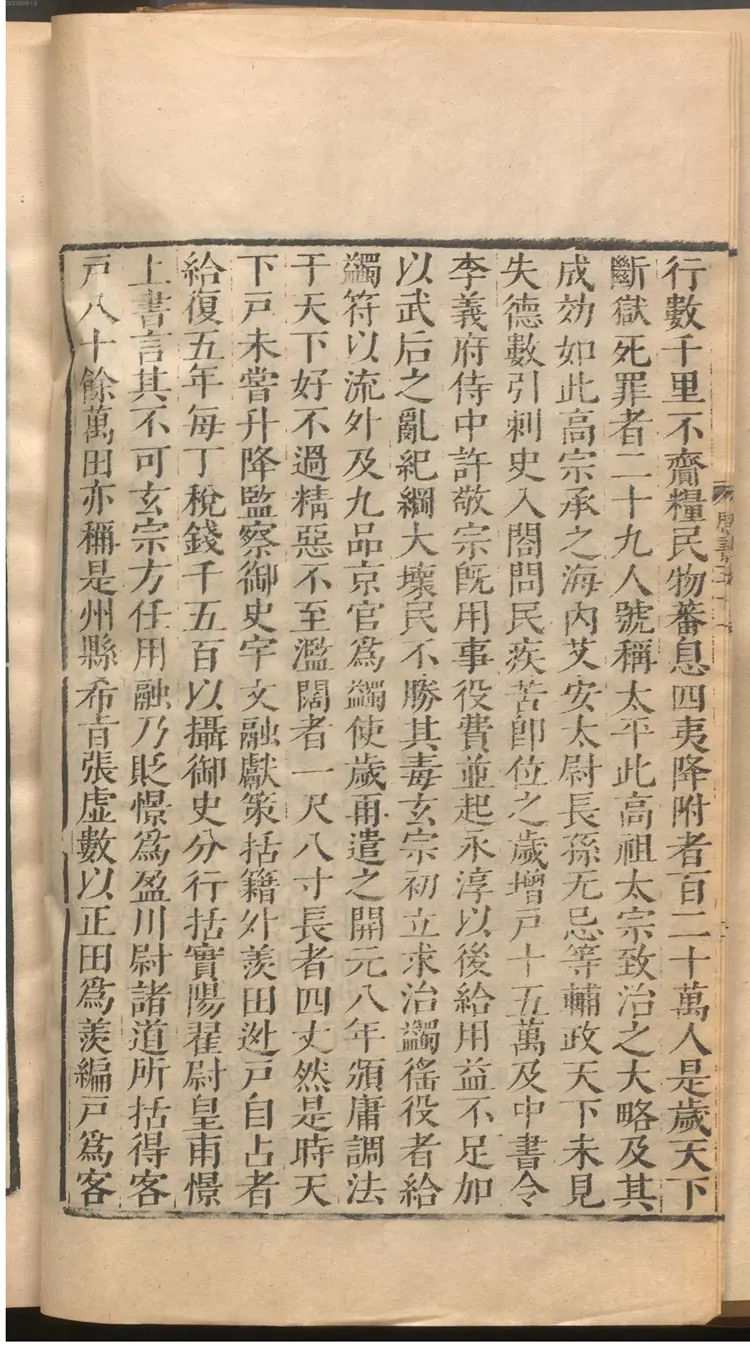 行數千里不齎糧民物蕃息四夷降附者百二十萬人是歲天下
斷獄死罪者二十九人號稱太平此高祖太宗致治之大略及其
成効如此高宗承之海內艾安太尉長孫无忌等輔政天下未見
失德數引刺史入閤問民疾苦卽位之歲增戶十五萬及中書令
李義府侍中許敬宗旣用事役費並起永淳以後給用益不足加
以武后之亂紀綱大壞民不勝其毒玄宗初立求治蠲徭役者給
蠲符以流外及九品京官爲蠲使歲再遣之開元八年頒庸調法
于天下好不過精惡不至濫闊者一尺八寸長者四丈然是時天
下戶未嘗升降監察御史宇文融獻策括籍外羨田逃戶自占者
給復五年每丁稅錢千五百以攝御史分行括實陽翟尉皇甫憬
上書言其不可玄宗方任用融乃貶憬爲盈川尉諸道所括得客
戶八十餘萬田亦稱是州縣希旨張虛數以正田爲羨編戶爲客